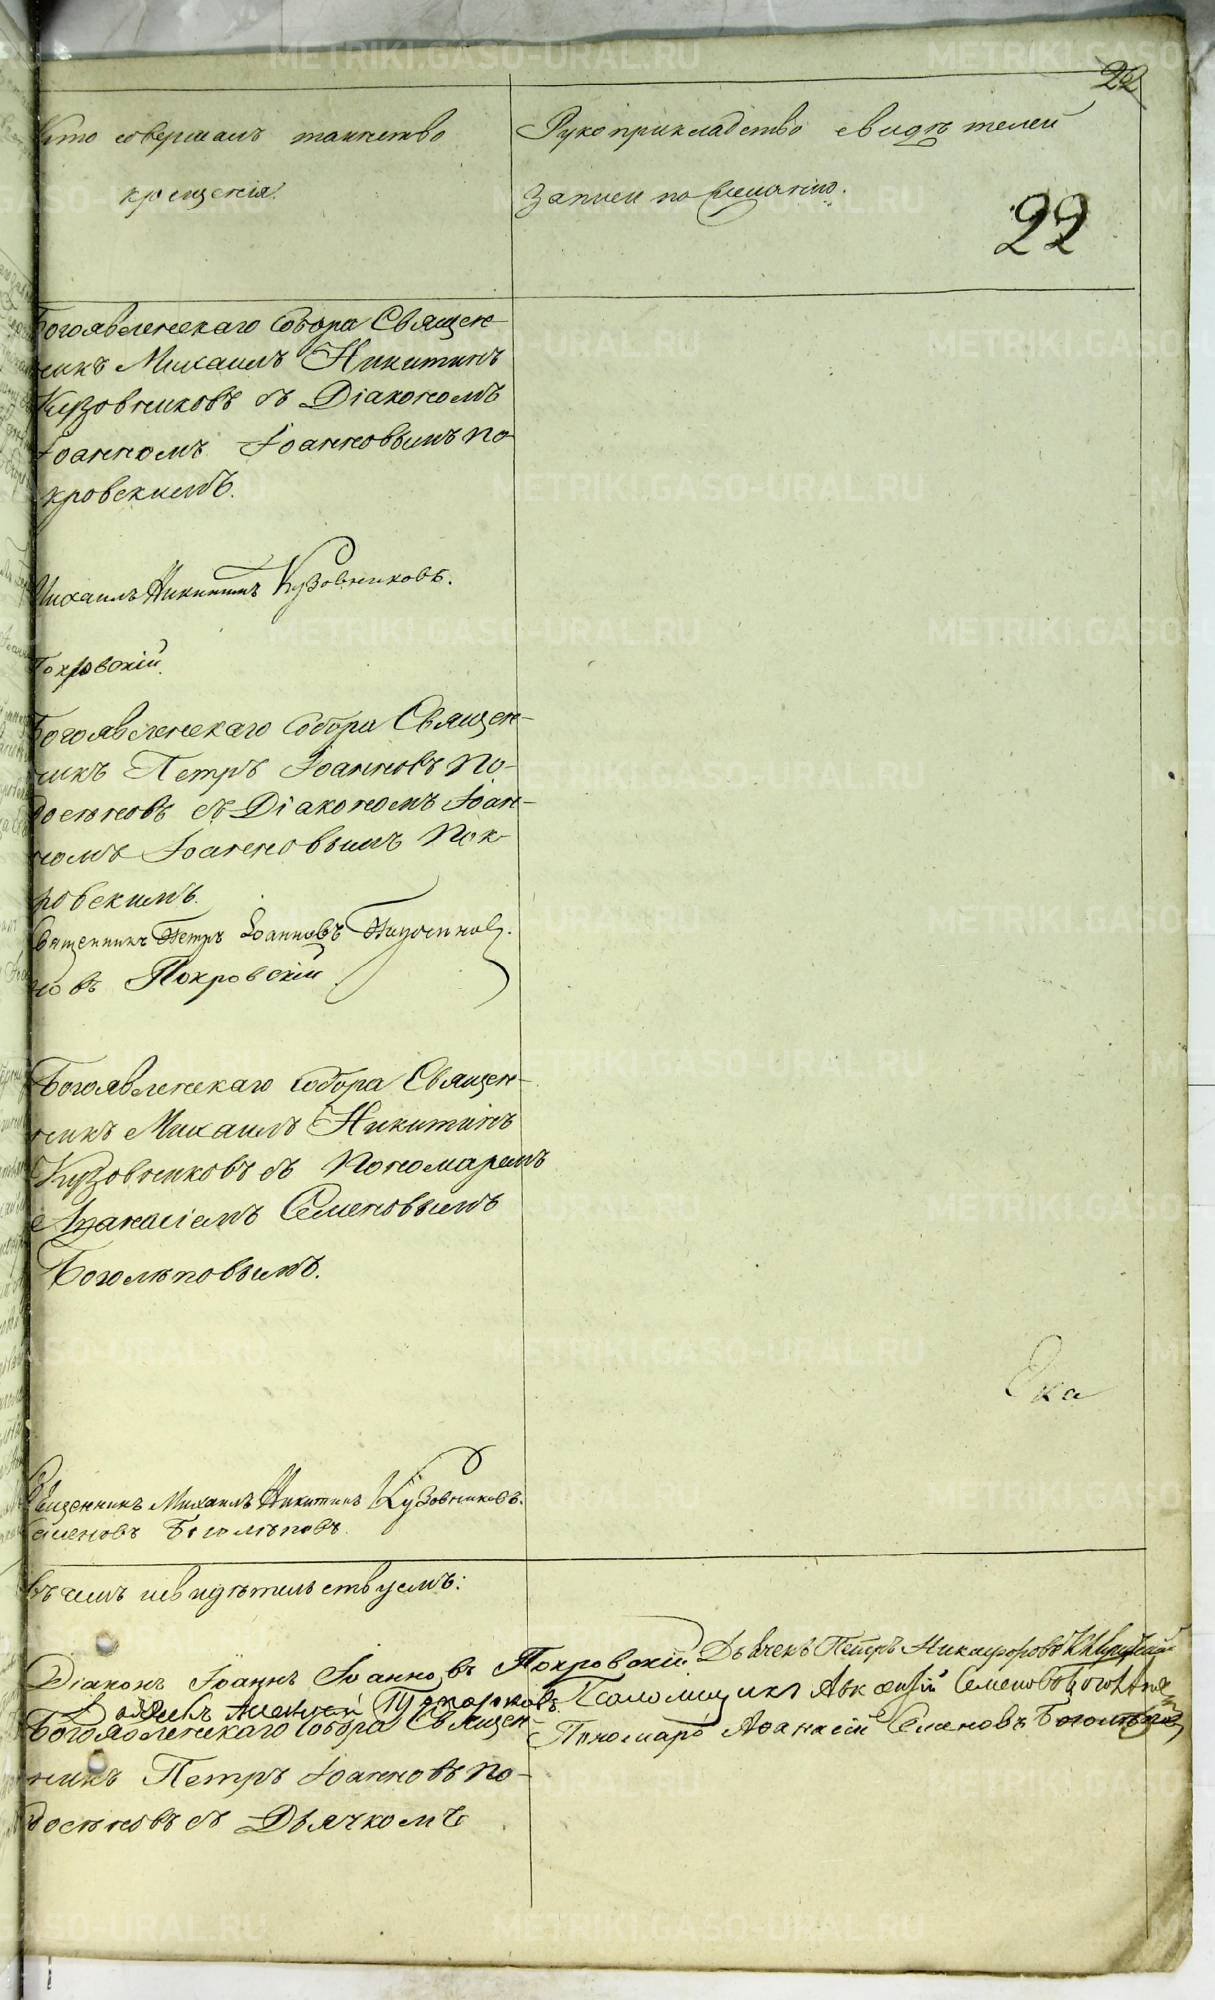 22
Кто совершалъ таинство
крещенія.
Рукоприкладство свидѣтелей
записи по желанію.
22
Богоявленскаго Собора Священ-
никъ Михаилъ Никитинъ
Кузовниковъ съ Діакономъ
Іоанномъ Іоанновымъ По-
кровскимъ.
Михаилъ Никитинъ Кузовниковъ.
Покровскій.
Богоявленскаго Собора Священ-
никъ Петръ Іоанновъ По-
съ Діакономъ Іоан-
номъ Іоанновымъ Пок-
ровскимъ.
Священникъ Петръ Іоанновъ
новъ Покровскій
Богоявленскаго Собора Священ-
никъ Михаилъ Никитинъ
Кузовниковъ съ Пономаремъ
Аѳанасіемъ Семеновымъ
Боголѣповымъ.
Ека
Священникъ Михаилъ Никитинъ Кузовниковъ.
Семеновъ Боголѣповъ.
въ чемъ и свидѣтельствуемъ:
Діаконъ Іоаннъ Іоанновъ Покровскій Дьячекъ Петръ Никифоровъ
Алексѣй Топорковъ. Псаломщикъ Авксентій Семеновъ
Богоявленскаго Собора Священ-
Пономарь Аѳанасій Семеновъ Боголѣповъ
никъ Петръ Іоанновъ По-
съ Дьячкомъ
METRIKI.GASO-URAL.RU